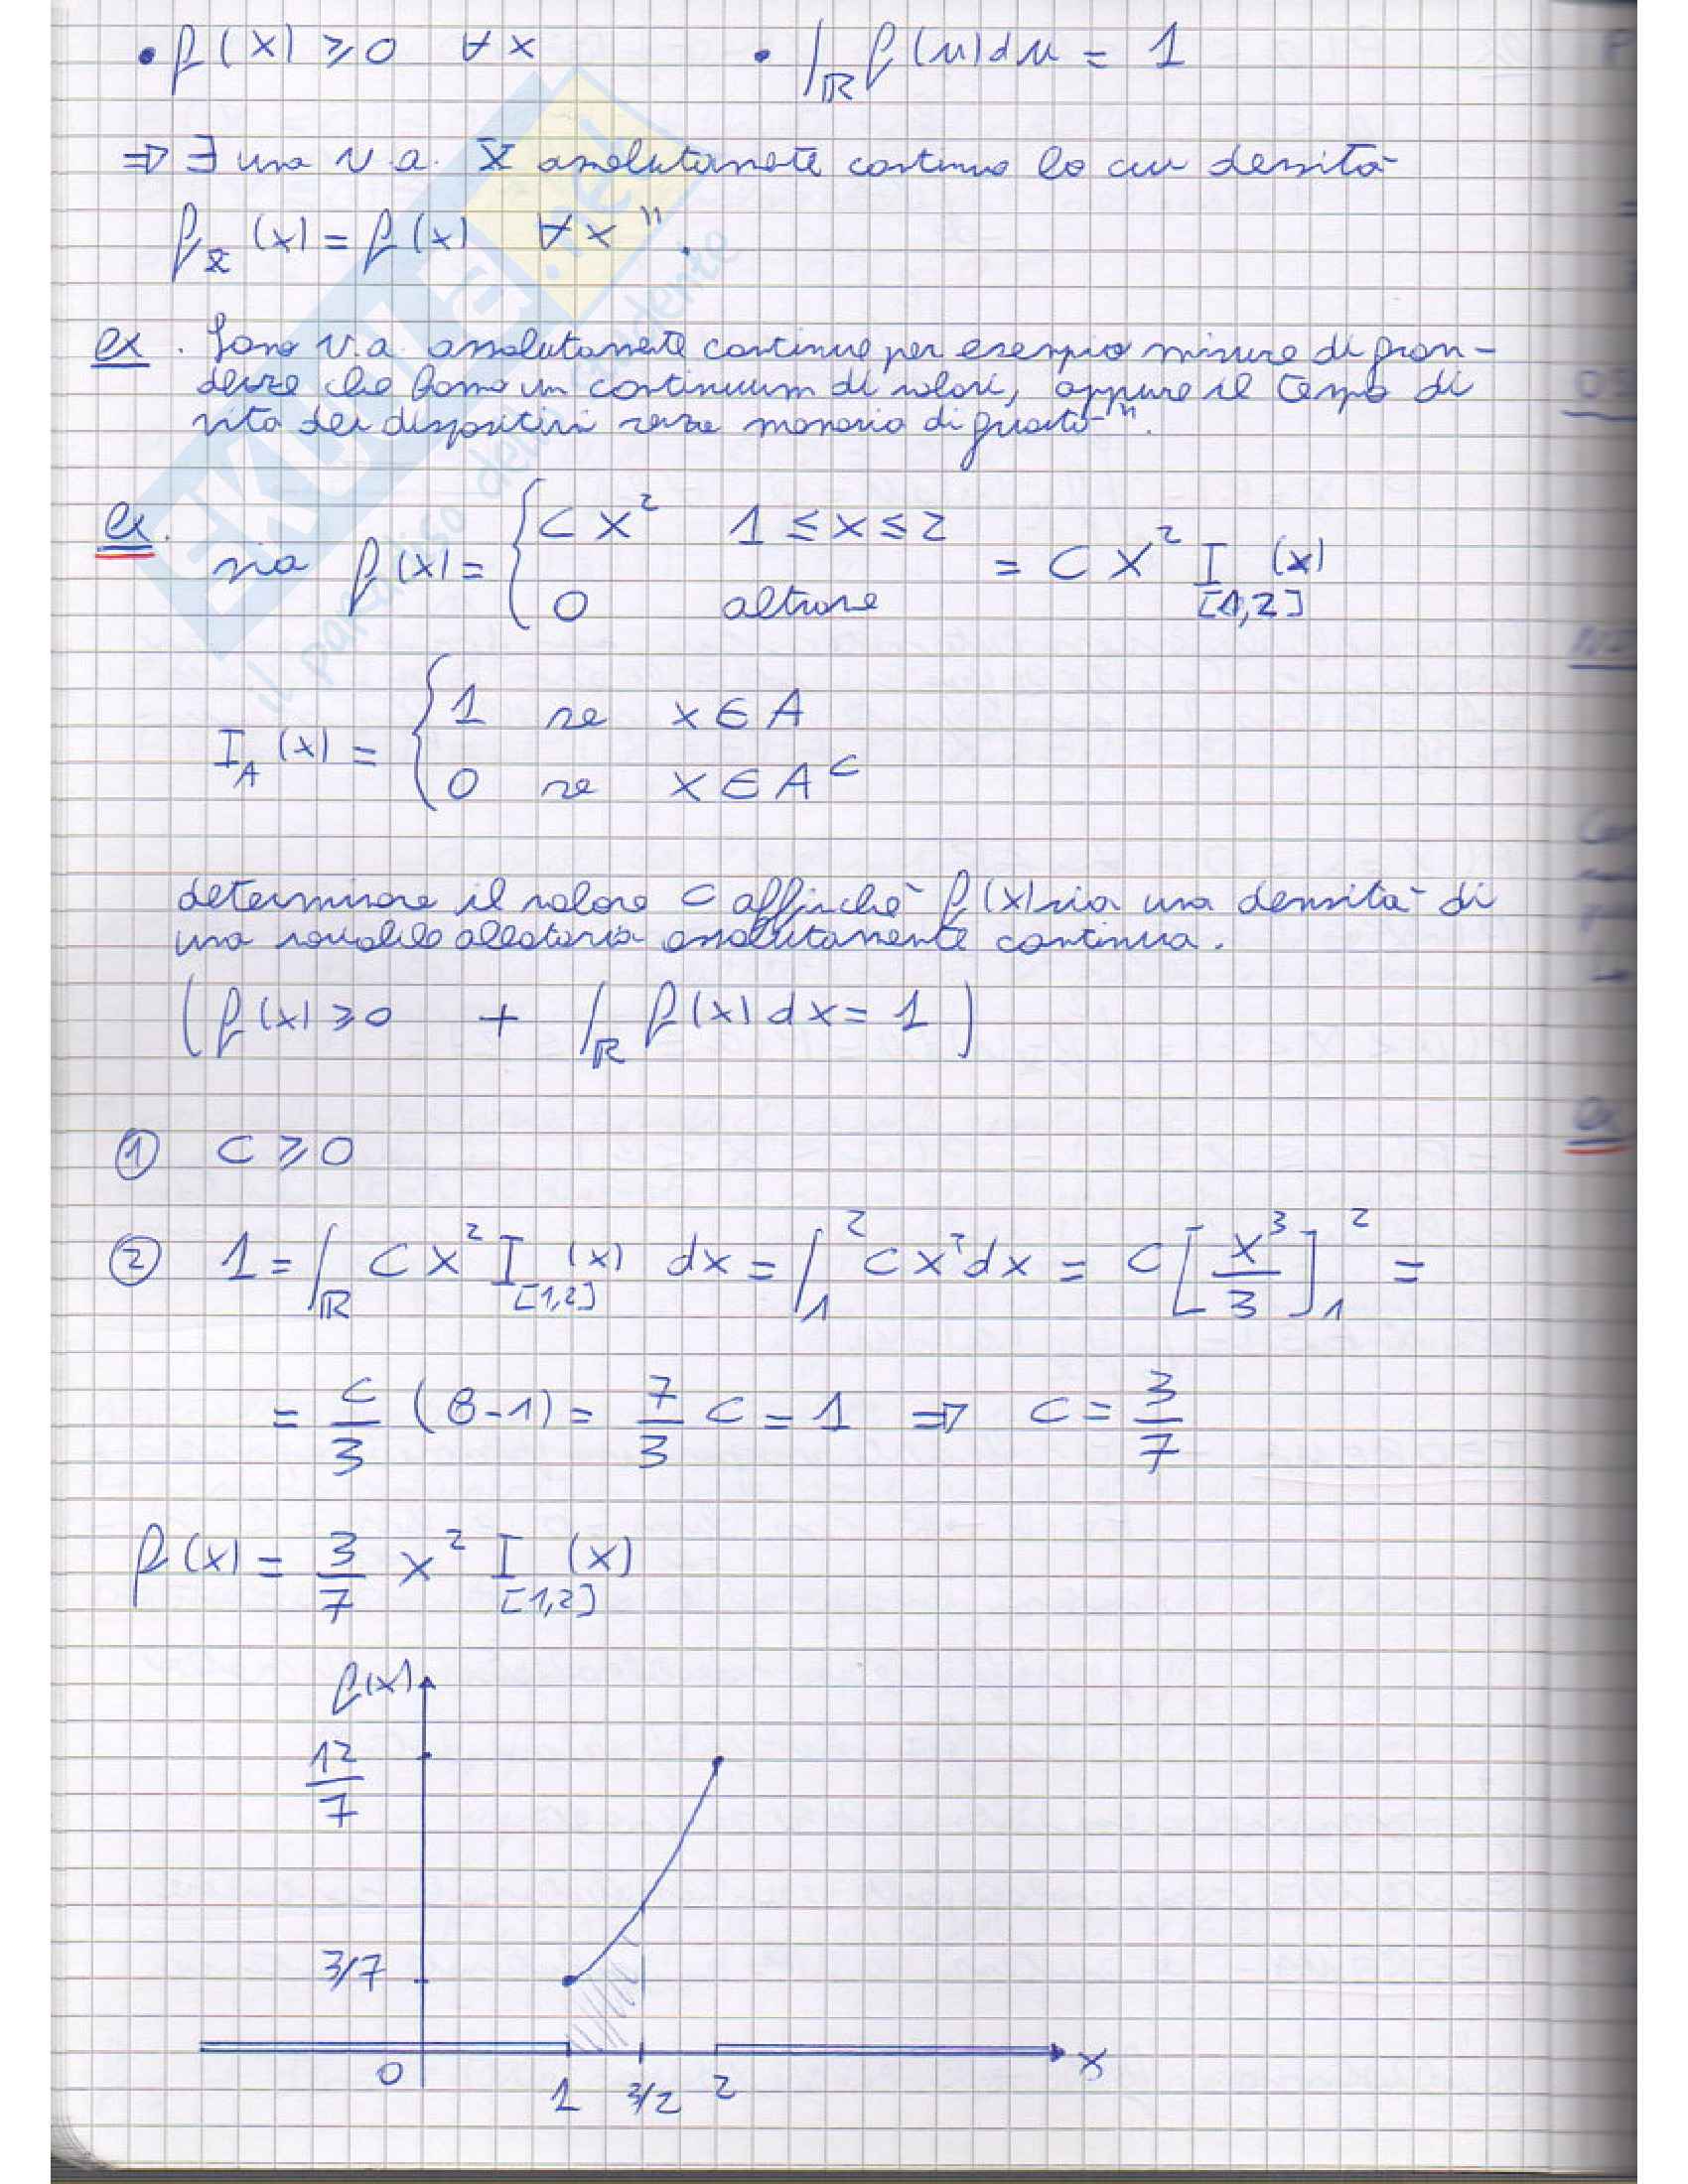 • f(x) ≥ 0 ∀x • ∫_ℝ f(u)du = 1
⇒ ∃ una v.a. X assolutamente continua la cui densità
f_X(x) = f(x) ∀x".
ex. Sono v.a. assolutamente continue per esempio misure di gran-
dezze che hanno un continuum di valori, oppure il tempo di
vita dei dispositivi senza memoria di guasto".
ex. sia f(x) = { cx² 1 ≤ x ≤ 2 = cx² I_[1,2](x)
0 altrove
I_A(x) = { 1 se x ∈ A
0 se x ∈ A^c
determinare il valore c affinché f(x) sia una densità di
una variabile aleatoria assolutamente continua.
(f(x) ≥ 0 + ∫_ℝ f(x)dx = 1)
① c ≥ 0
② 1 = ∫_ℝ cx² I_[1,2](x) dx = ∫_1^2 cx²dx = c[x³/3]_1^2 =
= c/3 (8-1) = 7/3 c = 1 ⇒ c = 3/7
f(x) = 3/7 x² I_[1,2](x)
f(x)
12/7
3/7
0 1 3/2 2 x
EKUŁA.net
il paradiso dello studente